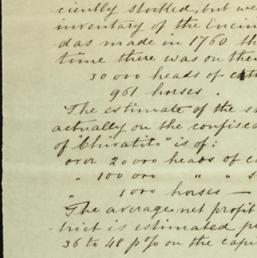 ciently stocked, but we
inventory of the Encin
das made in 1760 th
time there was on the
30 000 heads of catt
961 horses.
The estimate of the s
actually on the confisca
of "Chiratiti" is of:
over 20 000 heads of c
" 100 000 " " s
" 1000 horses —
The average net profit
trict is estimated p
36 to 48 p% on the capi